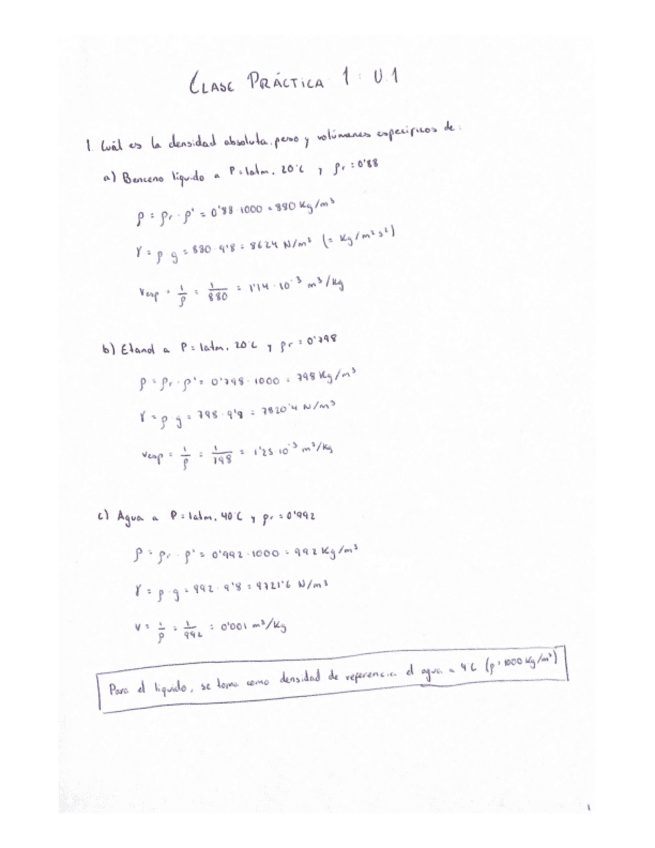 CLASE PRÁCTICA 1: U.1
1. Cuál es la densidad absoluta, peso y volúmenes específicos de:
a) Benceno líquido a P = 1atm, 20ºC y ρr = 0'88
ρ = ρr · ρ' = 0'88 · 1000 = 880 Kg/m³
γ = ρ g = 880 · 9'8 = 8624 N/m³ (= Kg/m²s²)
vesp = 1/ρ = 1/880 = 1'14 · 10⁻³ m³/Kg
b) Etanol a P = 1atm, 20ºC y ρr = 0'798
ρ = ρr · ρ' = 0'798 · 1000 = 798 Kg/m³
γ = ρ g = 798 · 9'8 = 7820'4 N/m³
vesp = 1/ρ = 1/798 = 1'25 · 10⁻³ m³/Kg
c) Agua a P = 1atm, 40ºC y ρr = 0'992
ρ = ρr · ρ' = 0'992 · 1000 = 992 Kg/m³
γ = ρ · g = 992 · 9'8 = 9721'6 N/m³
v = 1/ρ = 1/992 = 0'001 m³/Kg
Para el líquido, se toma como densidad de referencia el agua a 4ºC (ρ = 1000 Kg/m³)
1